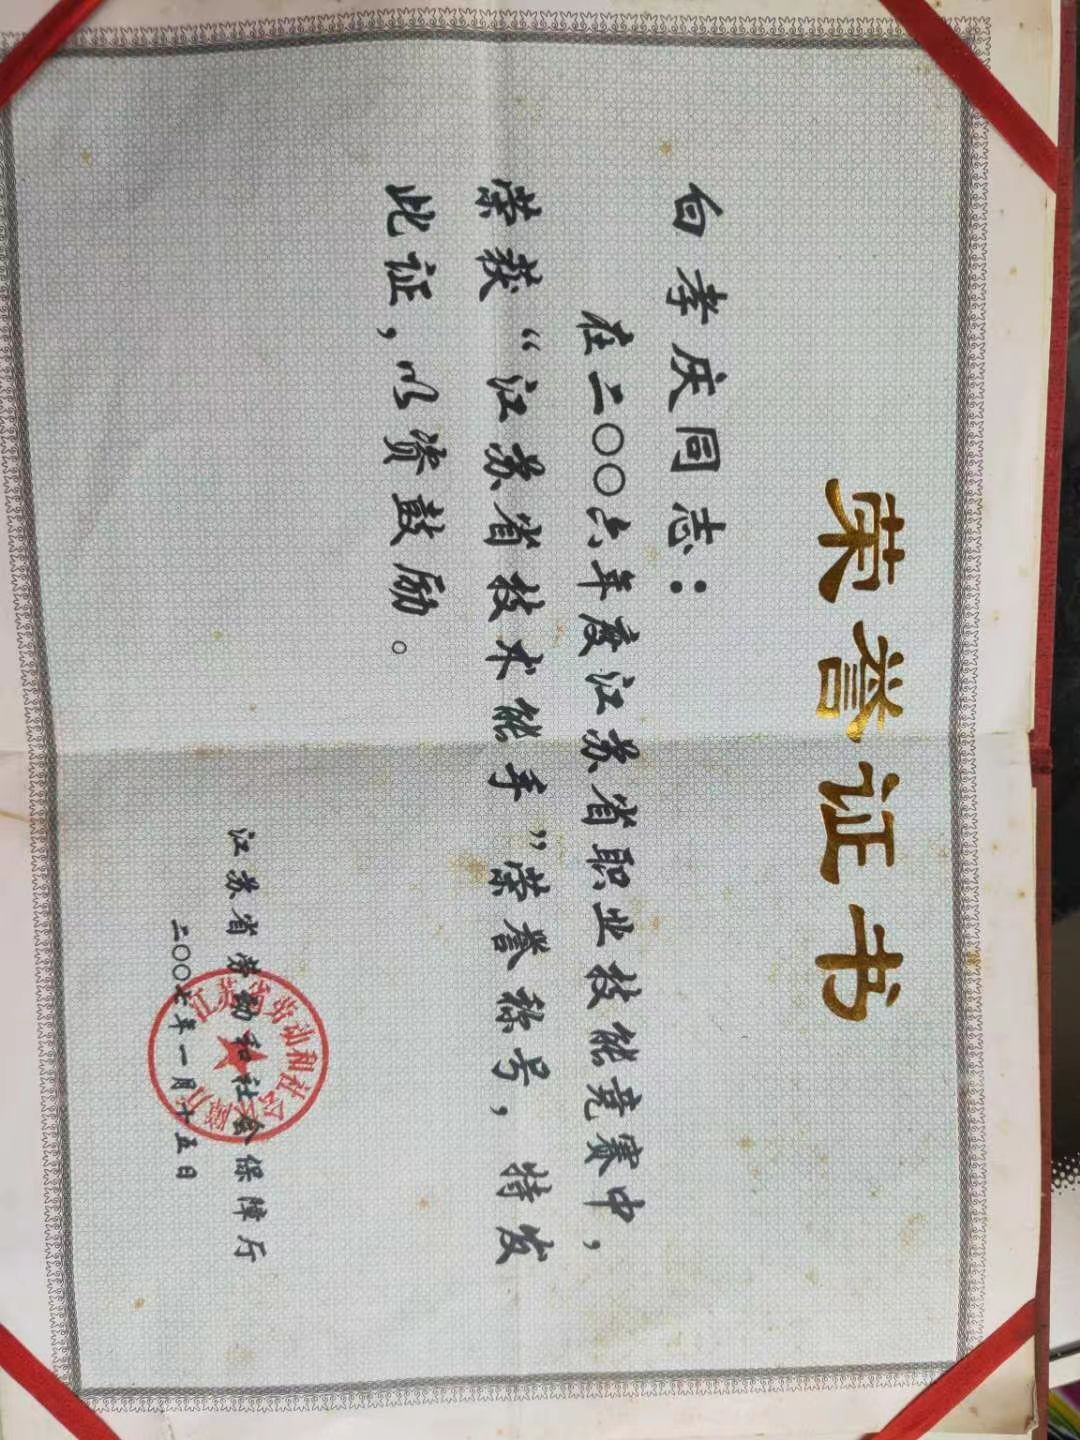 荣誉证书
白孝庆同志：
在二〇〇六年度江苏省职业技能竞赛中，
荣获“江苏省技术能手”荣誉称号，特发
此证，以资鼓励。
江苏省劳动和社会保障厅
二〇〇七年一月十五日
江苏省劳动和社会保障厅